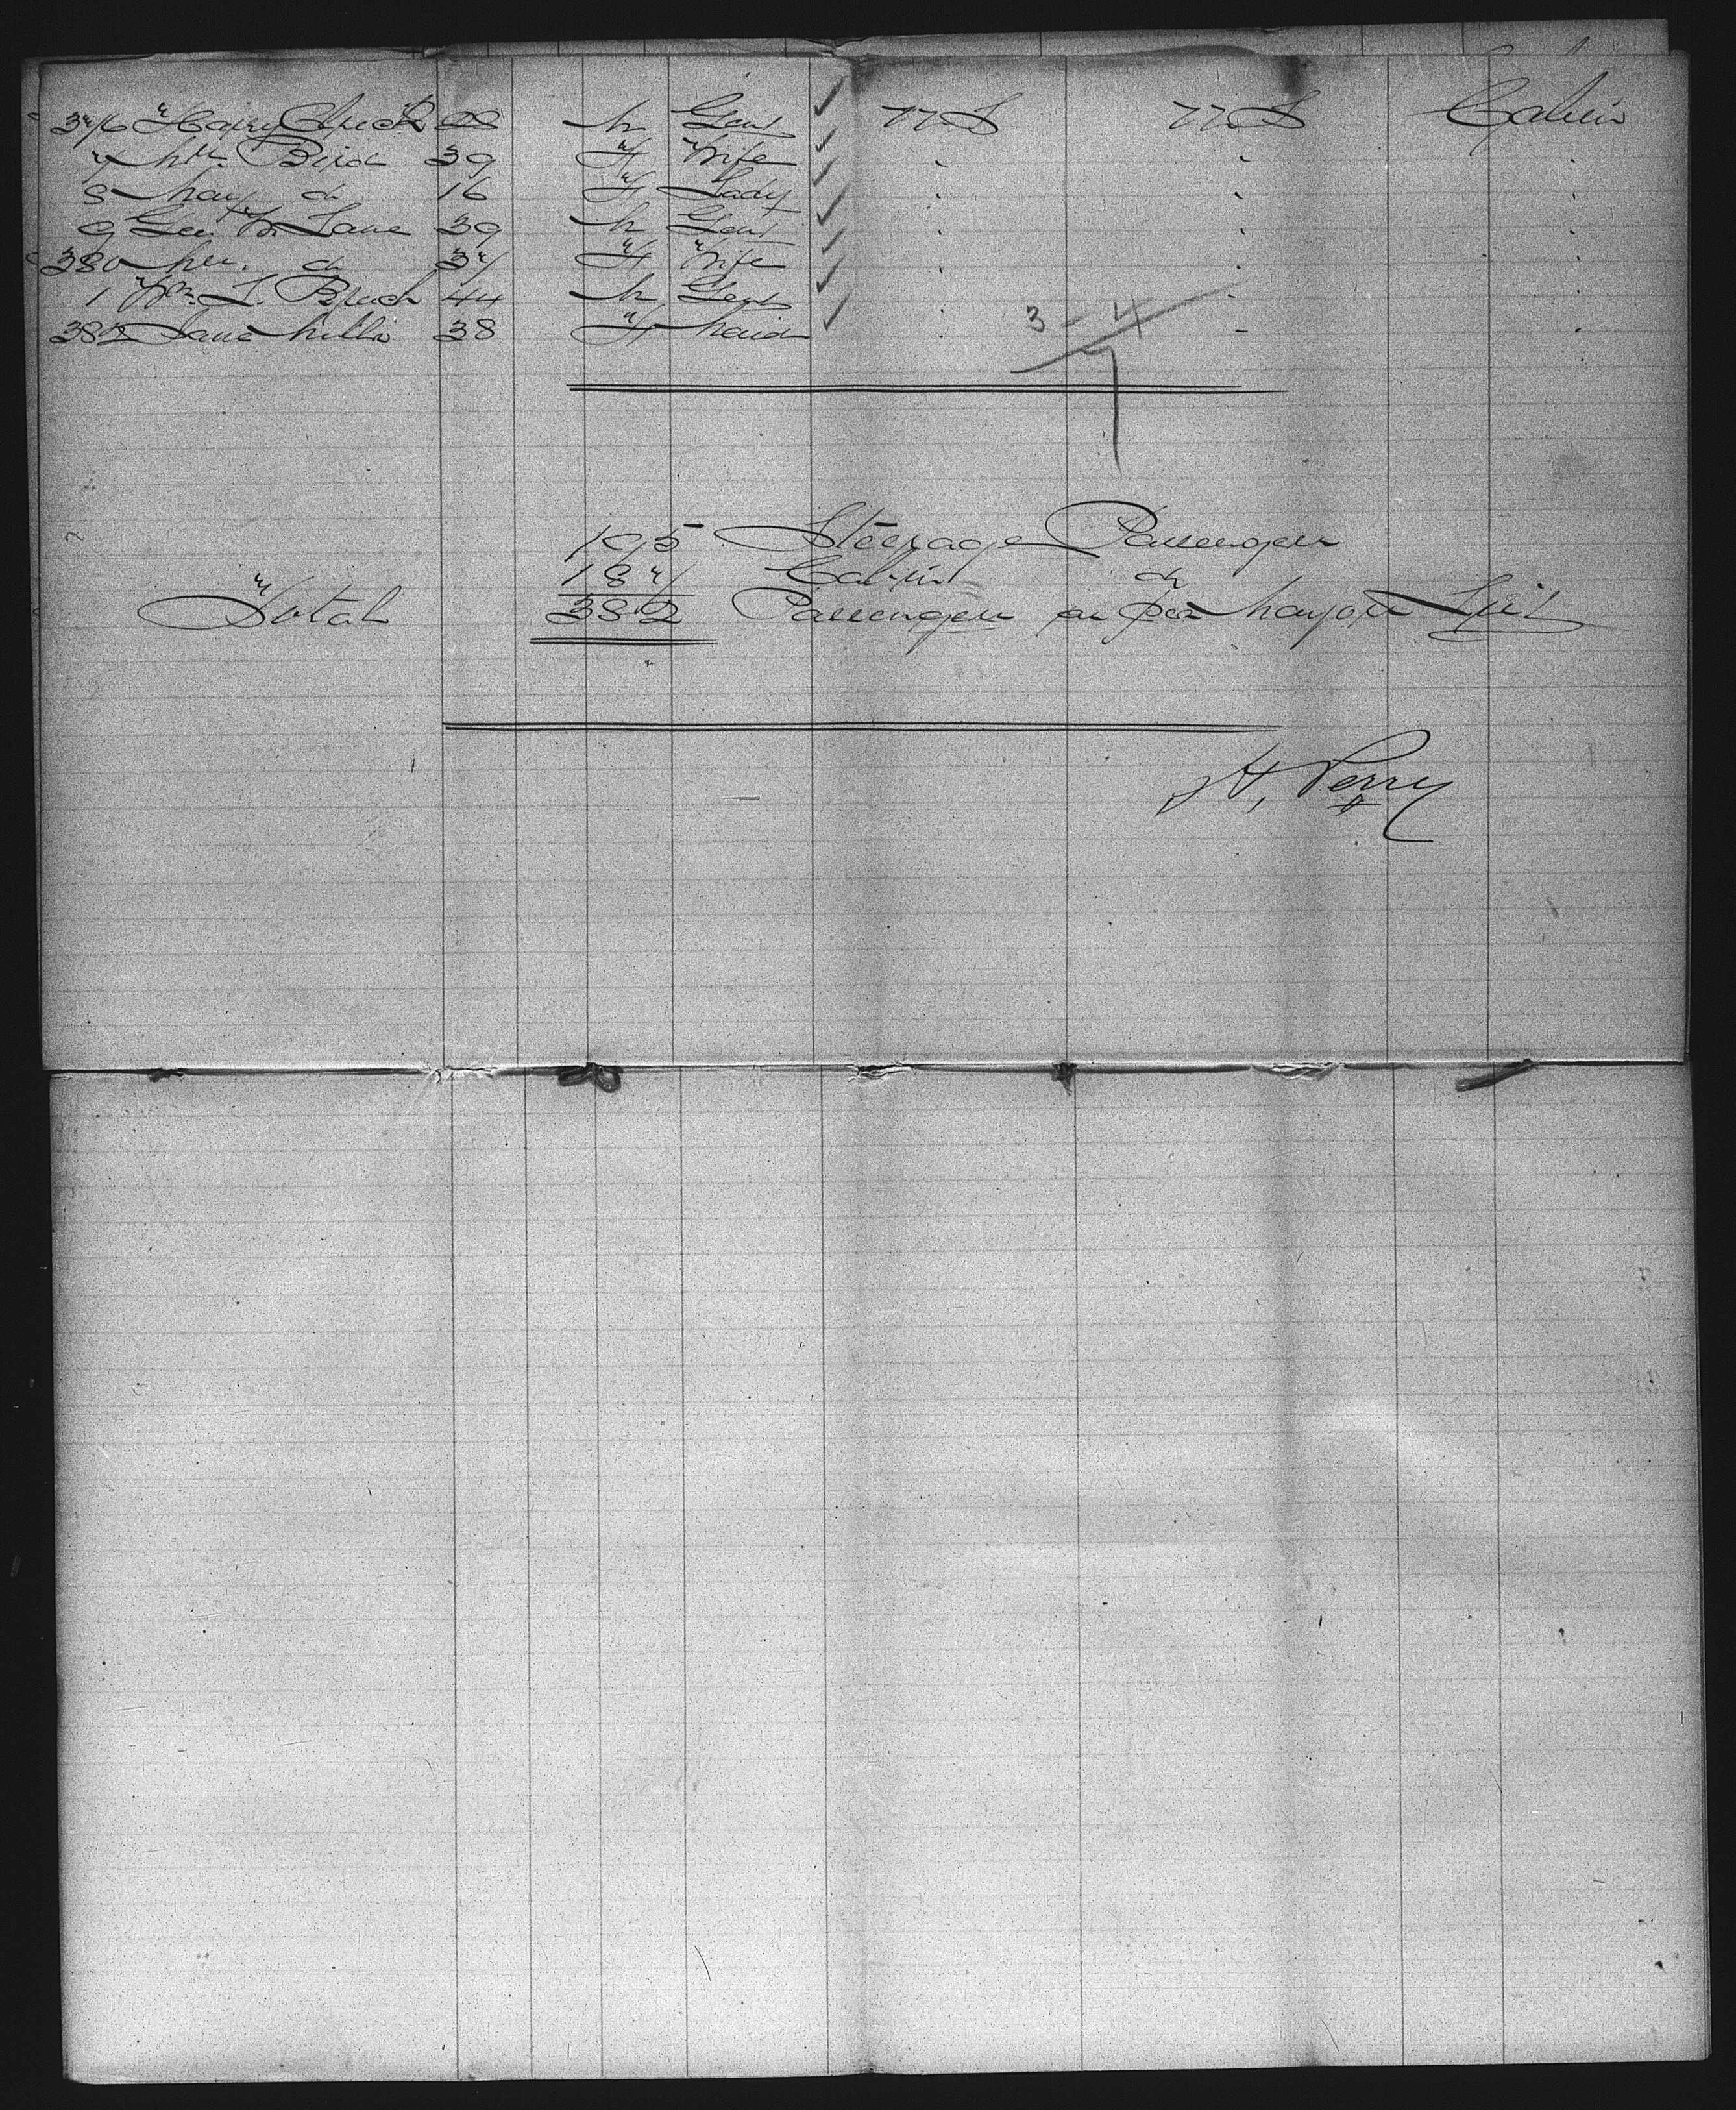 376 Harry 28 M Gent ✓ U.S. U.S. Cabin
7 Mrs. Bird 39 F Wife ✓ " " "
8 May do 16 F Lady ✓ " " "
9 Geo. W. Lane 39 M Gent ✓ " " "
380 Mrs. do 37 F Wife ✓ " " "
1 Wm. J. 44 M Gent ✓ " " "
382 Jane Millis 38 F Maid ✓ " " "
3 - 4
7
195 Steerage Passengers
187 Cabin do
Total 382 Passengers as per List
H. Perry